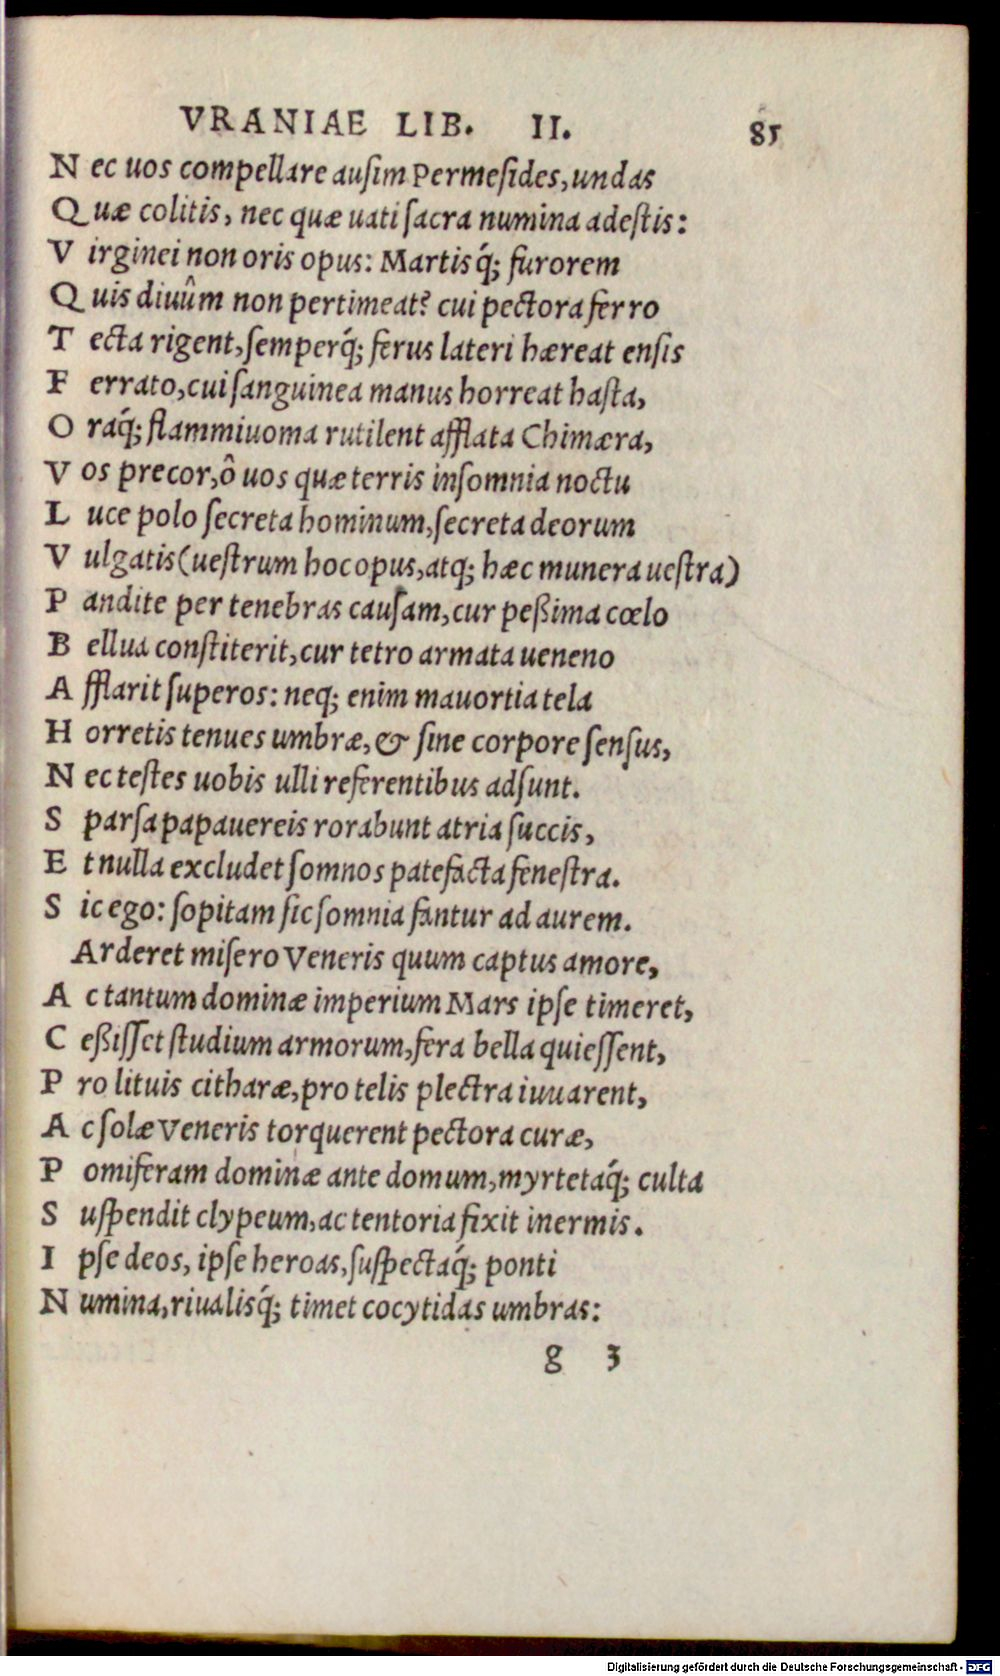 VRANIAE LIB. II. 85
N ec uos compellare ausim Permesides, undas
Q uæ colitis, nec quæ uati sacra numina adestis:
V irginei non oris opus: Martisq́; furorem
Q uis diuûm non pertimeat? cui pectora ferro
T ecta rigent, semperq́; ferus lateri hæreat ensis
F errato, cui sanguinea manus horreat hasta,
O raq́; flammiuoma rutilent afflata Chimæra,
V os precor, ô uos quæ terris insomnia noctu
L uce polo secreta hominum, secreta deorum
V ulgatis (uestrum hoc opus, atq; hæc munera uestra)
P andite per tenebras causam, cur peßima cœlo
B ellua constiterit, cur tetro armata ueneno
A fflarit superos: neq; enim mauortia tela
H orretis tenues umbræ, & sine corpore sensus,
N ec testes uobis ulli referentibus adsunt.
S parsa papauereis rorabunt atria succis,
E t nulla excludet somnos patefacta fenestra.
S ic ego: sopitam sic somnia fantur ad aurem.
Arderet misero Veneris quum captus amore,
A c tantum dominæ imperium Mars ipse timeret,
C eßisset studium armorum, fera bella quiessent,
P ro lituis citharæ, pro telis plectra iuuarent,
A c solæ Veneris torquerent pectora curæ,
P omiferam dominæ ante domum, myrtetaq́; culta
S uspendit clypeum, ac tentoria fixit inermis.
I pse deos, ipse heroas, suspectaq́; ponti
N umina, riualisq́; timet cocytidas umbras:
g 3
Digitalisierung gefördert durch die Deutsche Forschungsgemeinschaft - DFG